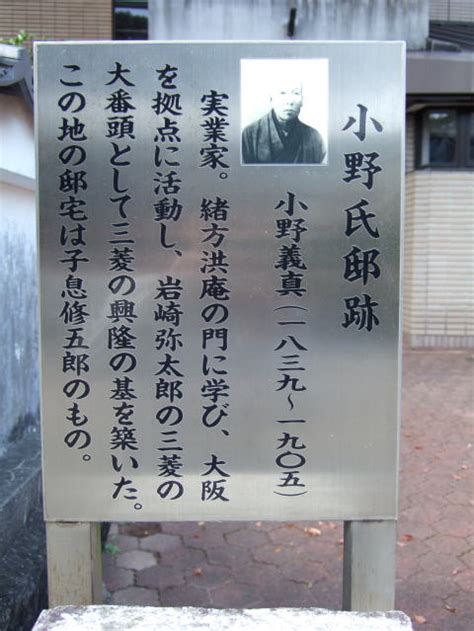 小野氏邸跡
小野義真(一八三九〜一九〇五)
実業家。緒方洪庵の門に学び、大阪
を拠点に活動し、岩崎弥太郎の三菱の
大番頭として三菱の興隆の基を築いた。
この地の邸宅は子息修五郎のもの。